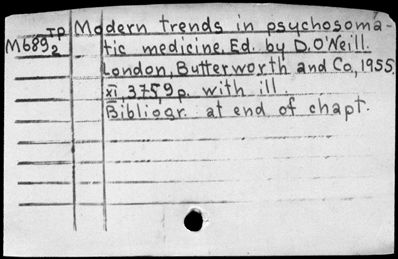 TP Modern trends in psychosoma-
M689₂ tic medicine. Ed. by D. O'Neill.
London, Butterworth and Co., 1955.
XI, 375,9 p. with ill.
Bibliogr. at end of chapt.